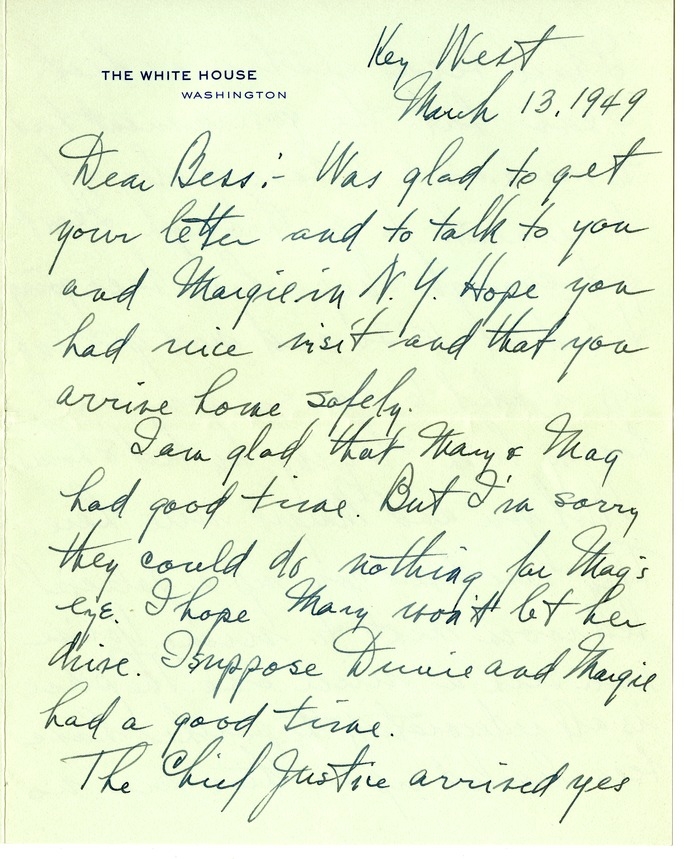 Key West
THE WHITE HOUSE
WASHINGTON
March 13, 1949
Dear Bess:- Was glad to get
your letter and to talk to you
and Margie in N.Y. Hope you
had nice visit and that you
arrive home safely.
I am glad that Mary & Mag
had good time. But I'm sorry
they could do nothing for Mag's
eye. I hope Mary won't let her
drive. I suppose and Margie
had a good time.
The Chief Justice arrived yes